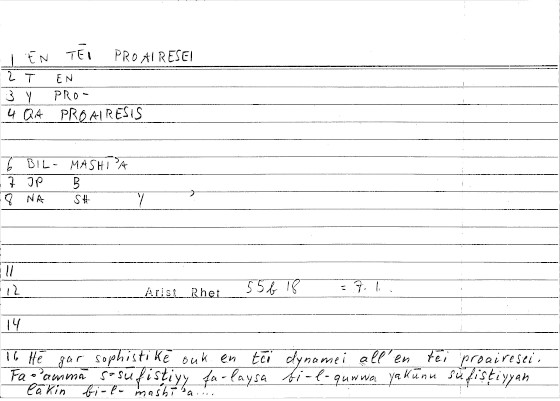 1 EN TĒI PROAIRESEI
2 T EN
3 Y PRO-
4 QA PROAIRESIS
6 BIL- MASHĪ'A
7 JP B
8 NA SH Y '
11
12 Arist Rhet 55b 18 = 7.1.
14
16 Hē gar sophistikē ouk en tēi dynamei all'en tēi proairesei.
Fa-'ammā s-sūfistiyy fa-laysa bi-l-quwwa yakūnu sūfistiyyan
lākin bi-l- mashī'a....